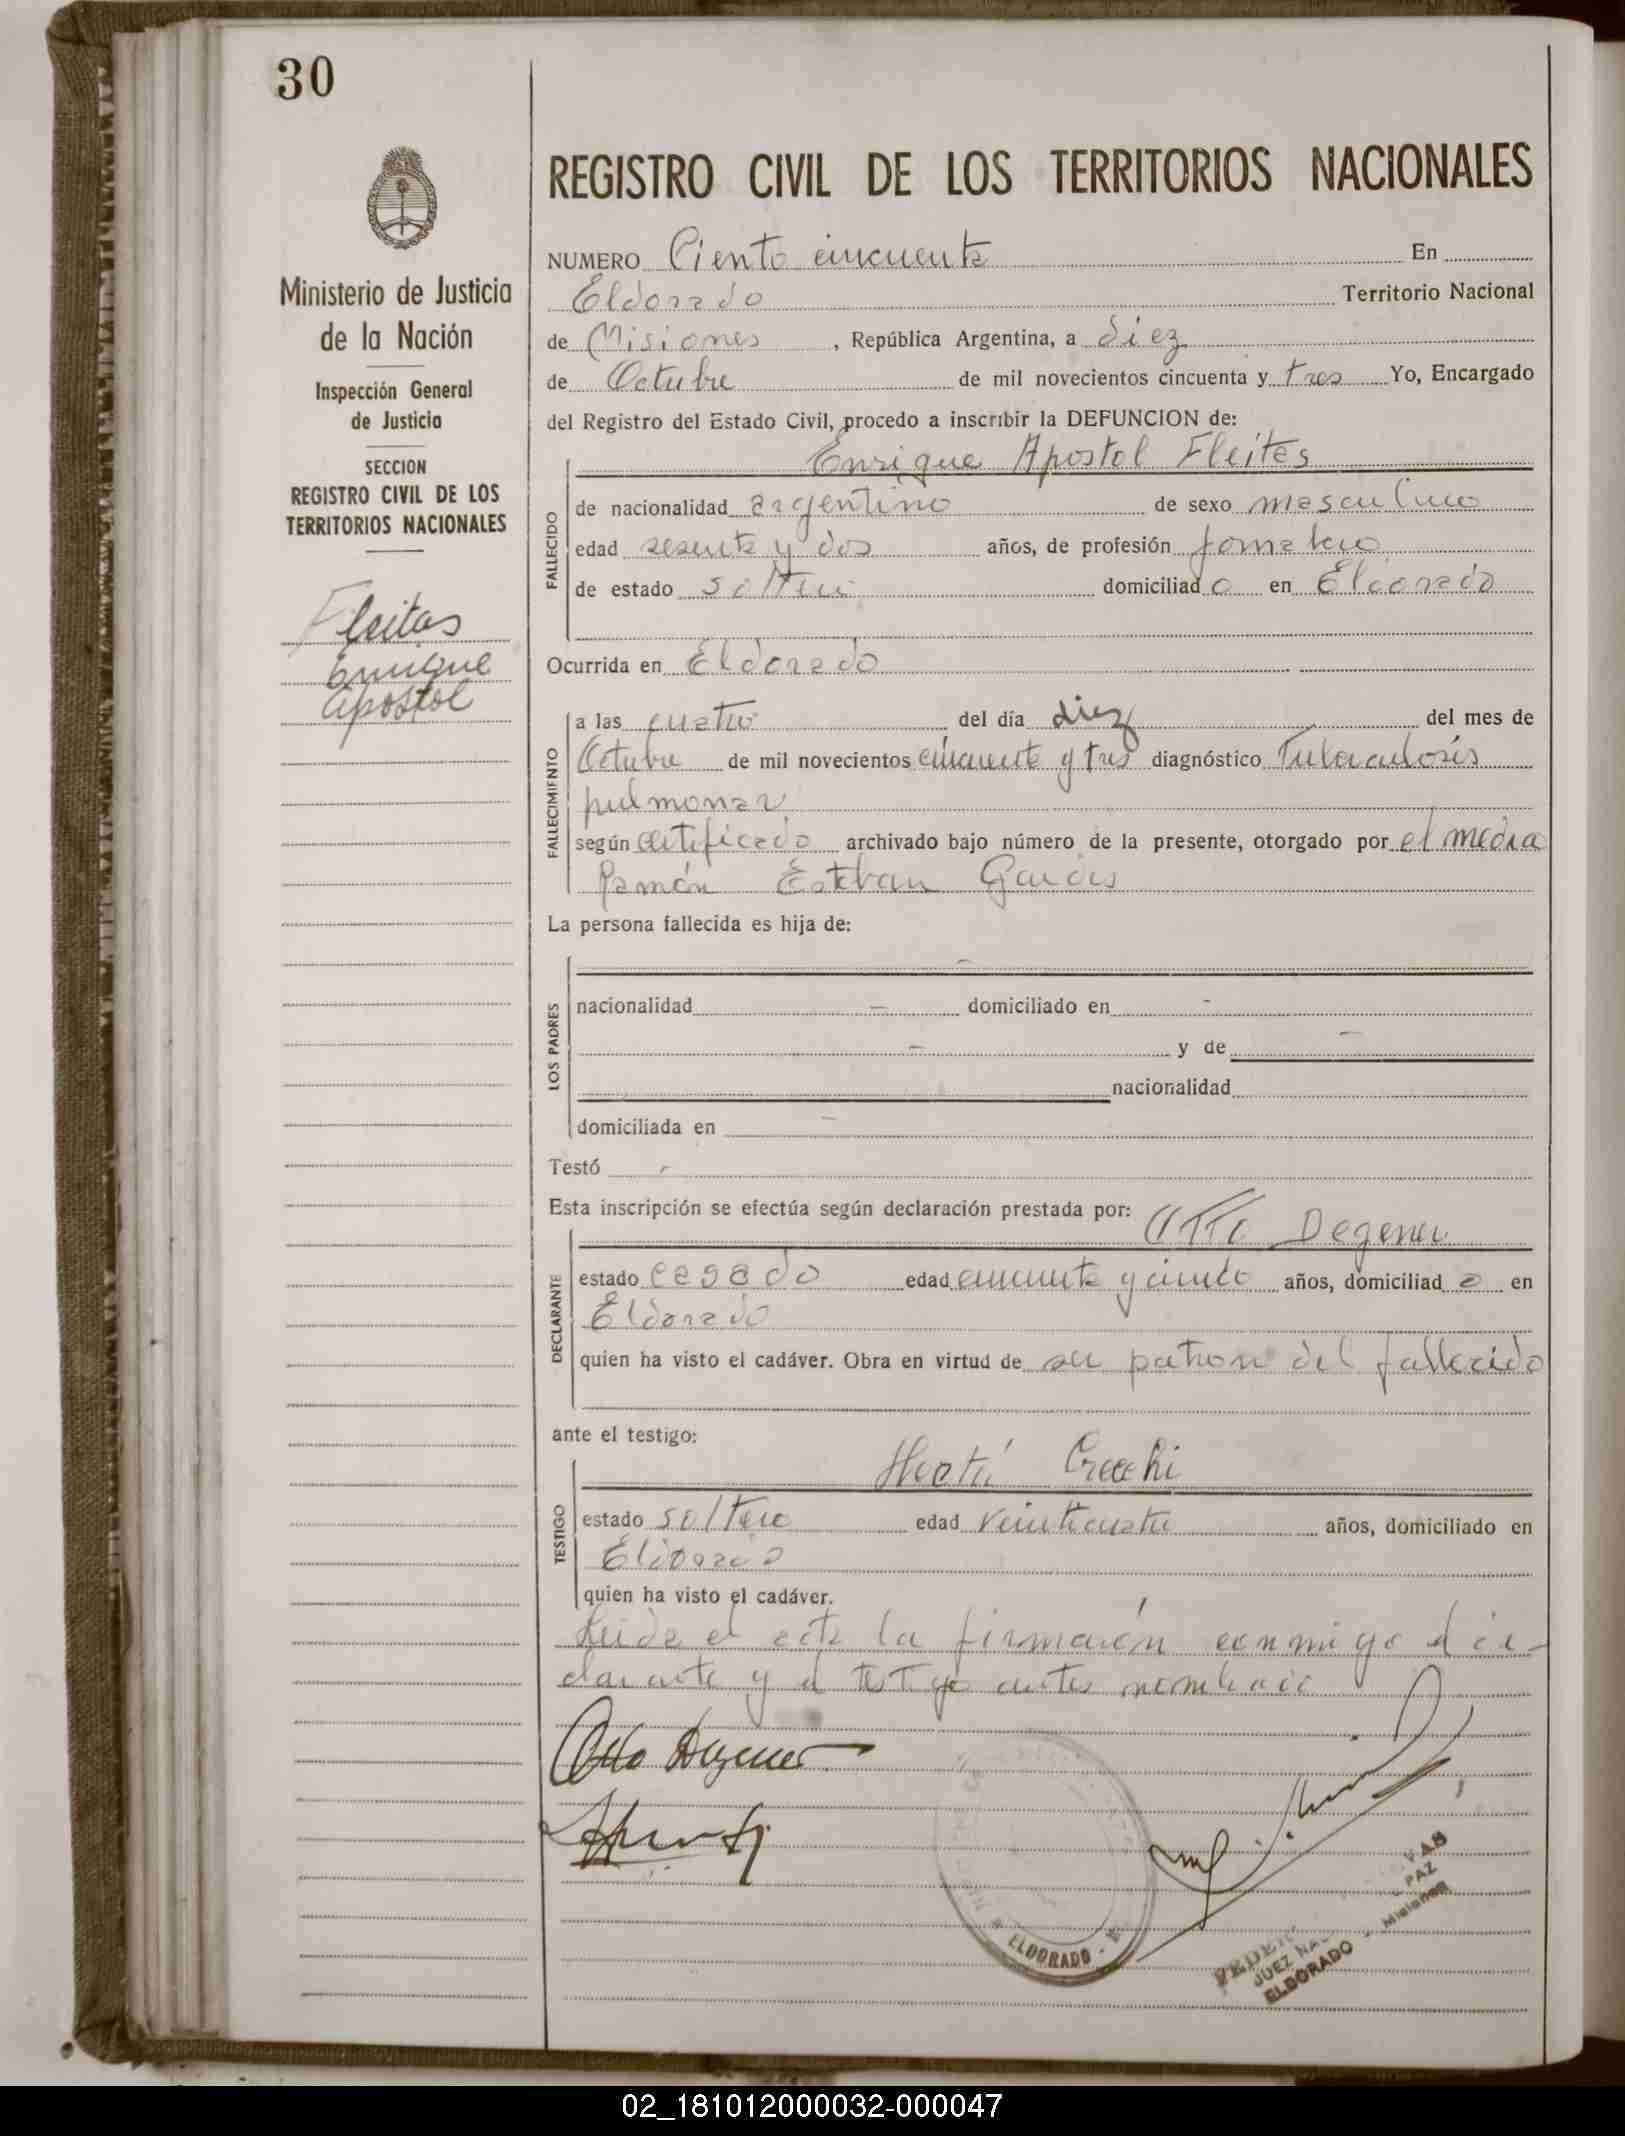 30
REGISTRO CIVIL DE LOS TERRITORIOS NACIONALES
Ministerio de Justicia
de la Nación
Inspección General
de Justicia
SECCION
REGISTRO CIVIL DE LOS
TERRITORIOS NACIONALES
Fleitas
Enrique
Apostol
NUMERO Ciento cincuenta En
Eldorado Territorio Nacional
de Misiones, República Argentina, a diez
de Octubre de mil novecientos cincuenta y tres Yo, Encargado
del Registro del Estado Civil, procedo a inscribir la DEFUNCION de:
Enrique Apostol Fleites
FALLECIDO
de nacionalidad argentino de sexo masculino
edad sesenta y dos años, de profesión jornalero
de estado soltero domiciliado en Eldorado
Ocurrida en Eldorado
FALLECIMIENTO
a las cuatro del día diez del mes de
Octubre de mil novecientos cincuenta y tres diagnóstico Tuberculosis
pulmonar
según certificado archivado bajo número de la presente, otorgado por el médico
Ramón Esteban
La persona fallecida es hija de:
LOS PADRES
-
nacionalidad - domiciliado en -
- y de -
nacionalidad
domiciliada en -
Testó -
Esta inscripción se efectúa según declaración prestada por:
Otto Degener
DECLARANTE
estado casado edad cincuenta y cinco años, domiciliado en
Eldorado
quien ha visto el cadáver. Obra en virtud de ser patron del fallecido
ante el testigo:
TESTIGO
estado soltero edad veinticuatro años, domiciliado en
Eldorado
quien ha visto el cadáver.
Leida el acta la firmaron conmigo el de-
clarante y el testigo antes nombrado
Otto Degener
ELDORADO
PAZ
Misiones
JUEZ
ELDORADO
02_181012000032-000047